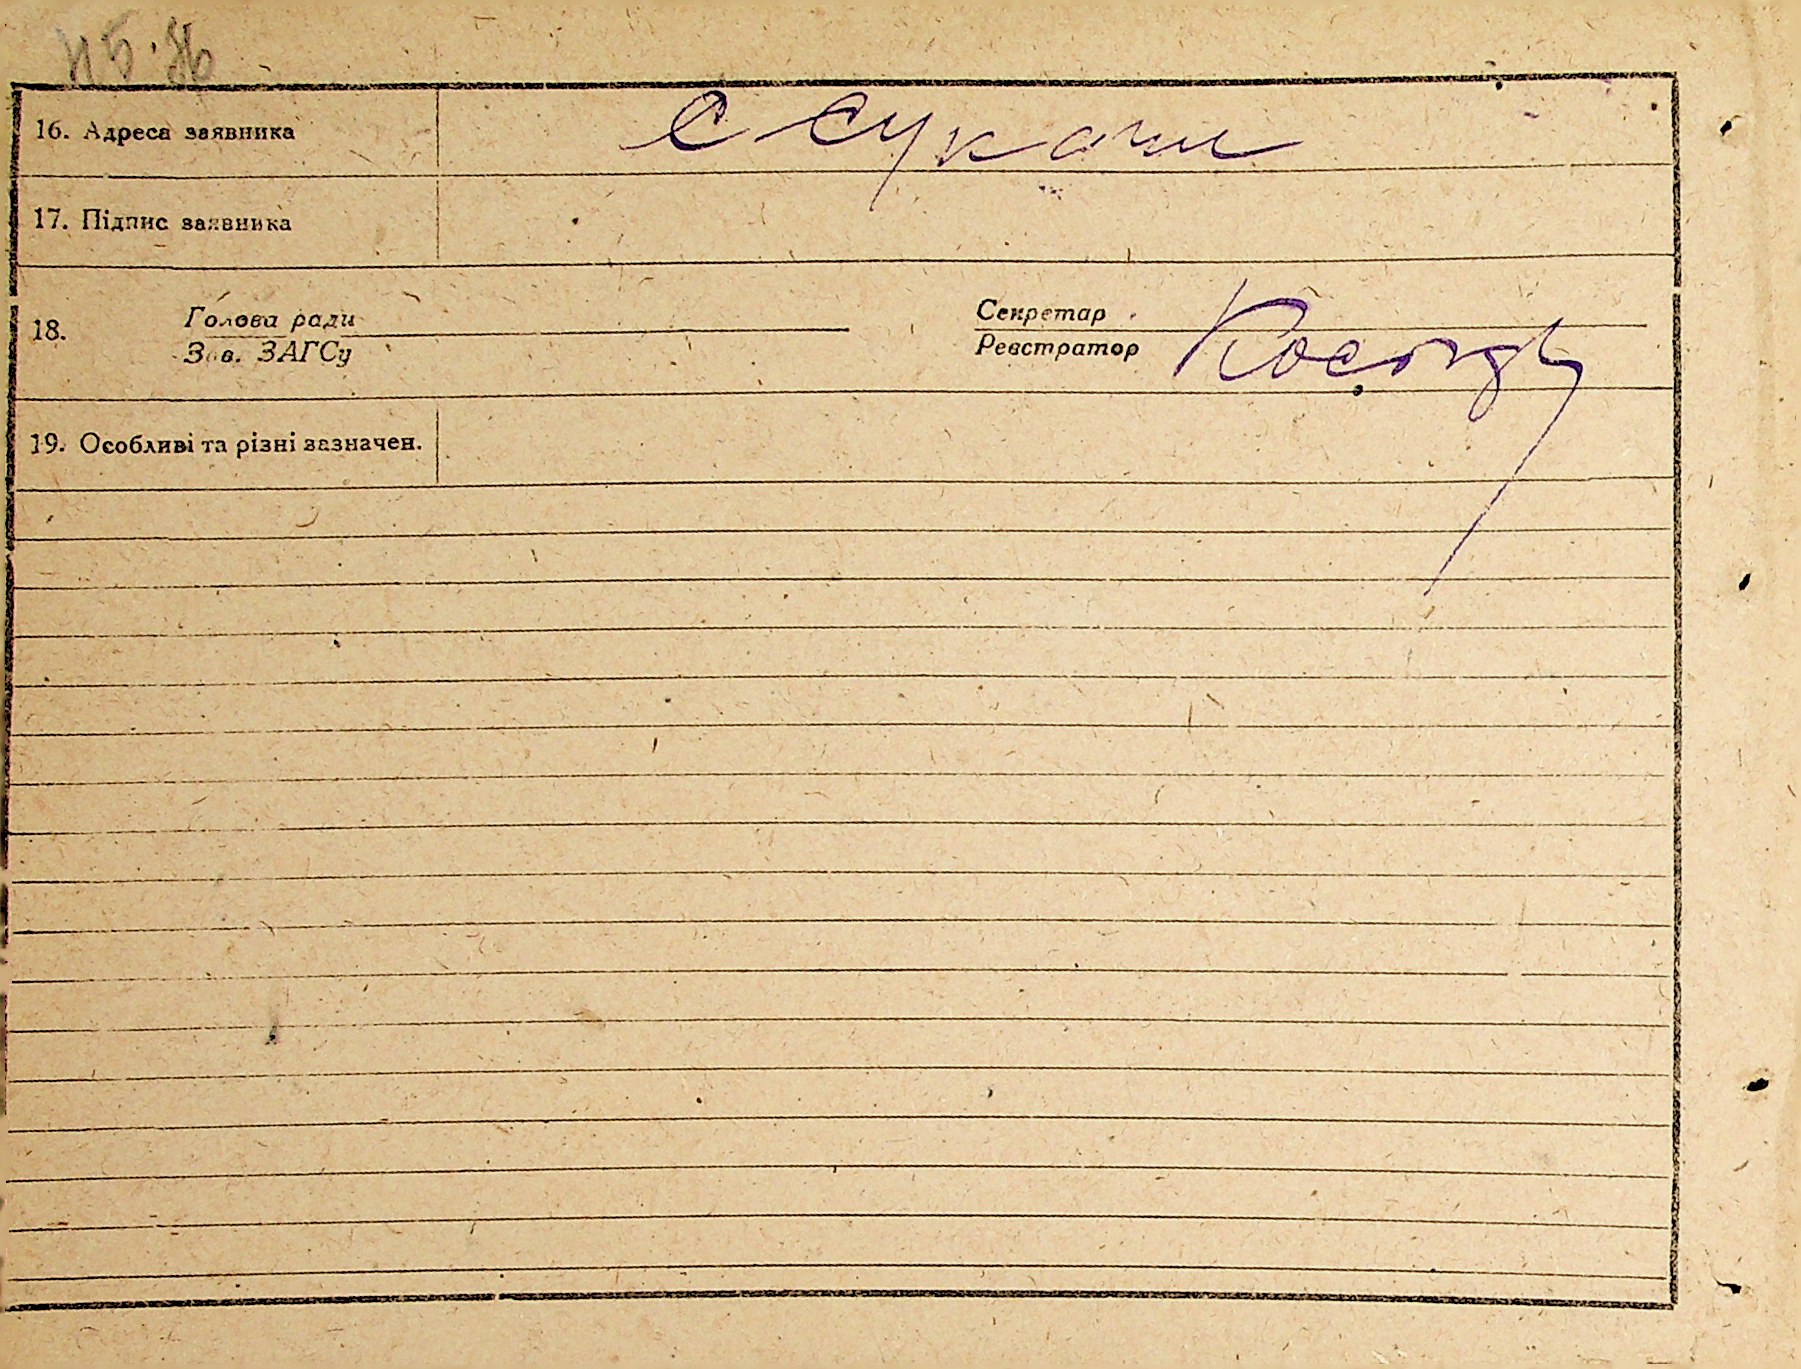 16. Адреса заявника
с Сукачи
17. Підпис заявника
18.
Голова ради
Зав. ЗАГСу
Секретар
Реєстратор
19. Особливі та різні зазначен.